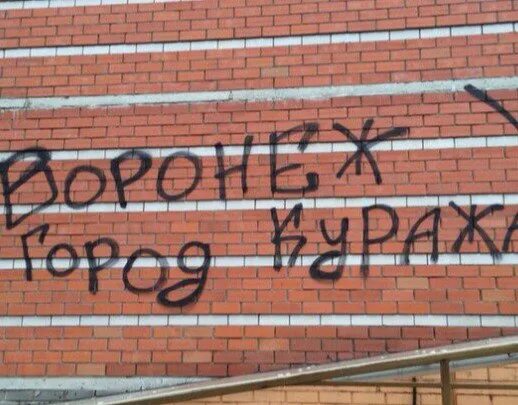 ВОРОНЕЖ
ГОРОД КУРАЖА